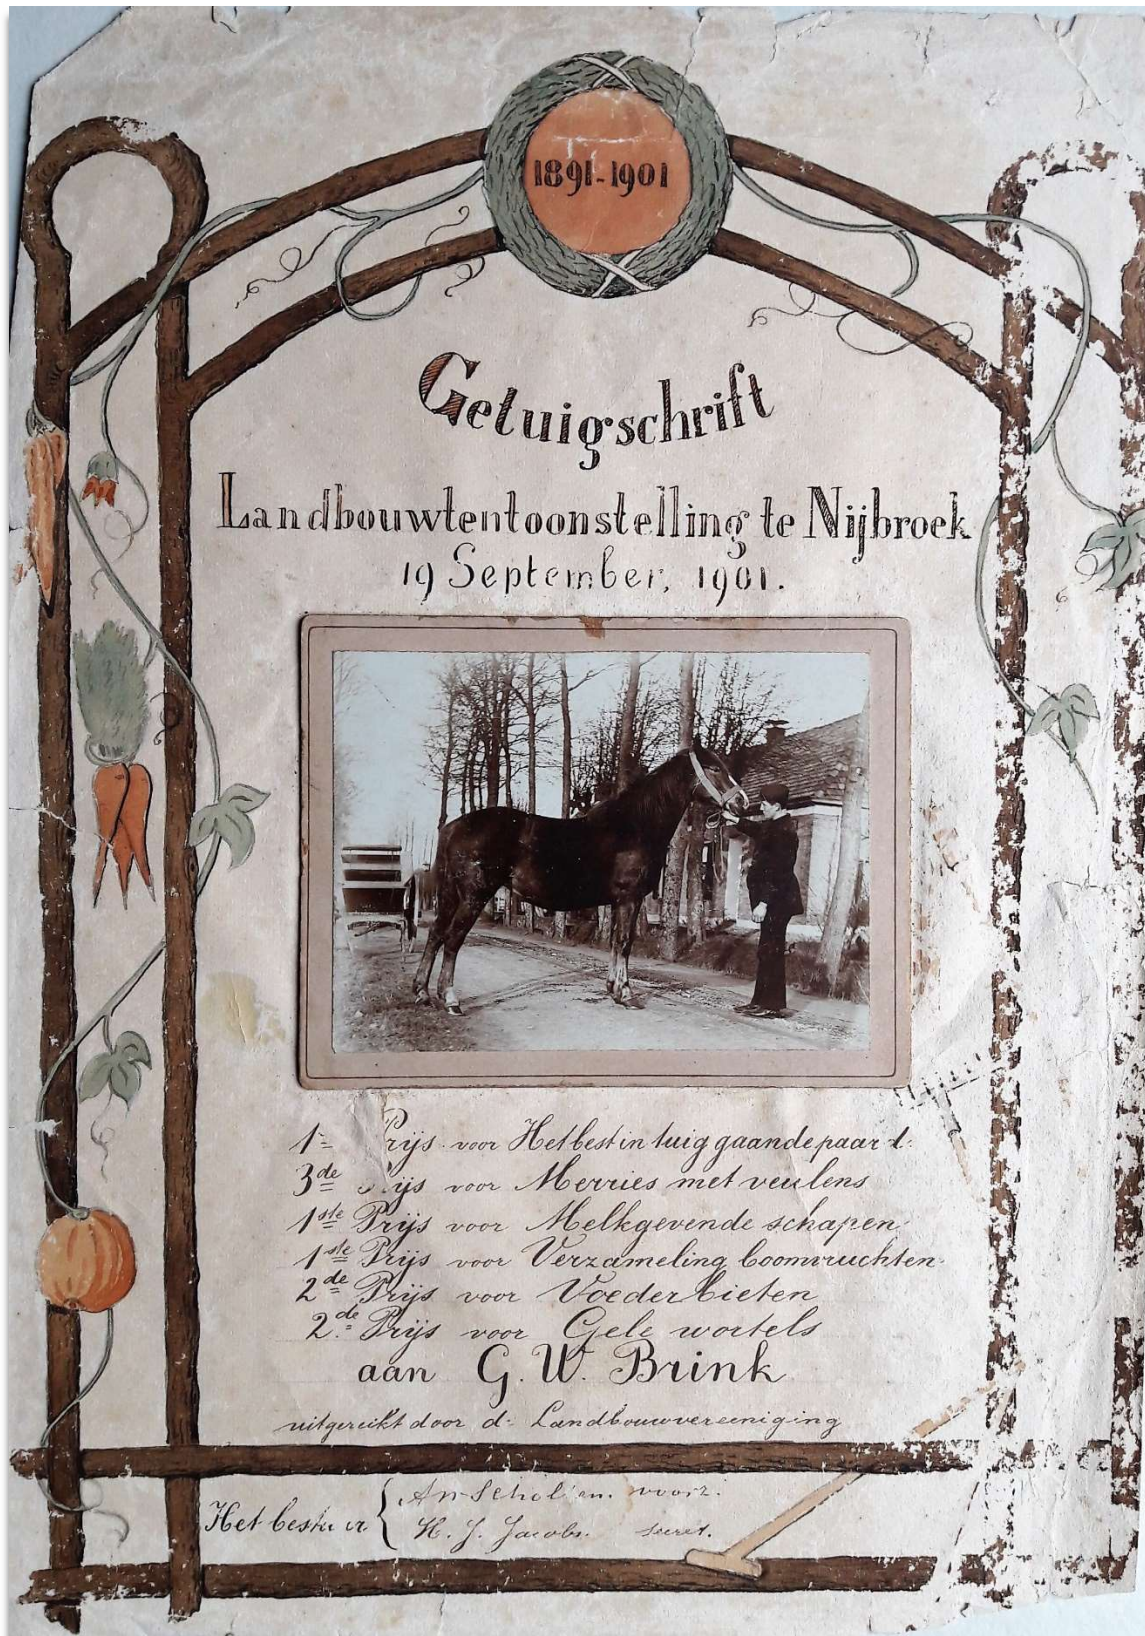 1891-1901
Getuigschrift
Landbouwtentoonstelling te Nijbroek
19 September, 1901.
1= Prijs voor Het best in tuig gaande paard.
3de Prijs voor Merries met veulens
1ste Prijs voor Melkgevende schapen.
1ste Prijs voor Verzameling boomvruchten.
2de Prijs voor Voederbieten
2de Prijs voor Gele wortels
aan G. W. Brink
uitgereikt door d= Landbouwvereeniging
Het bestuur voorz.
H. J. Jacobs. secret.